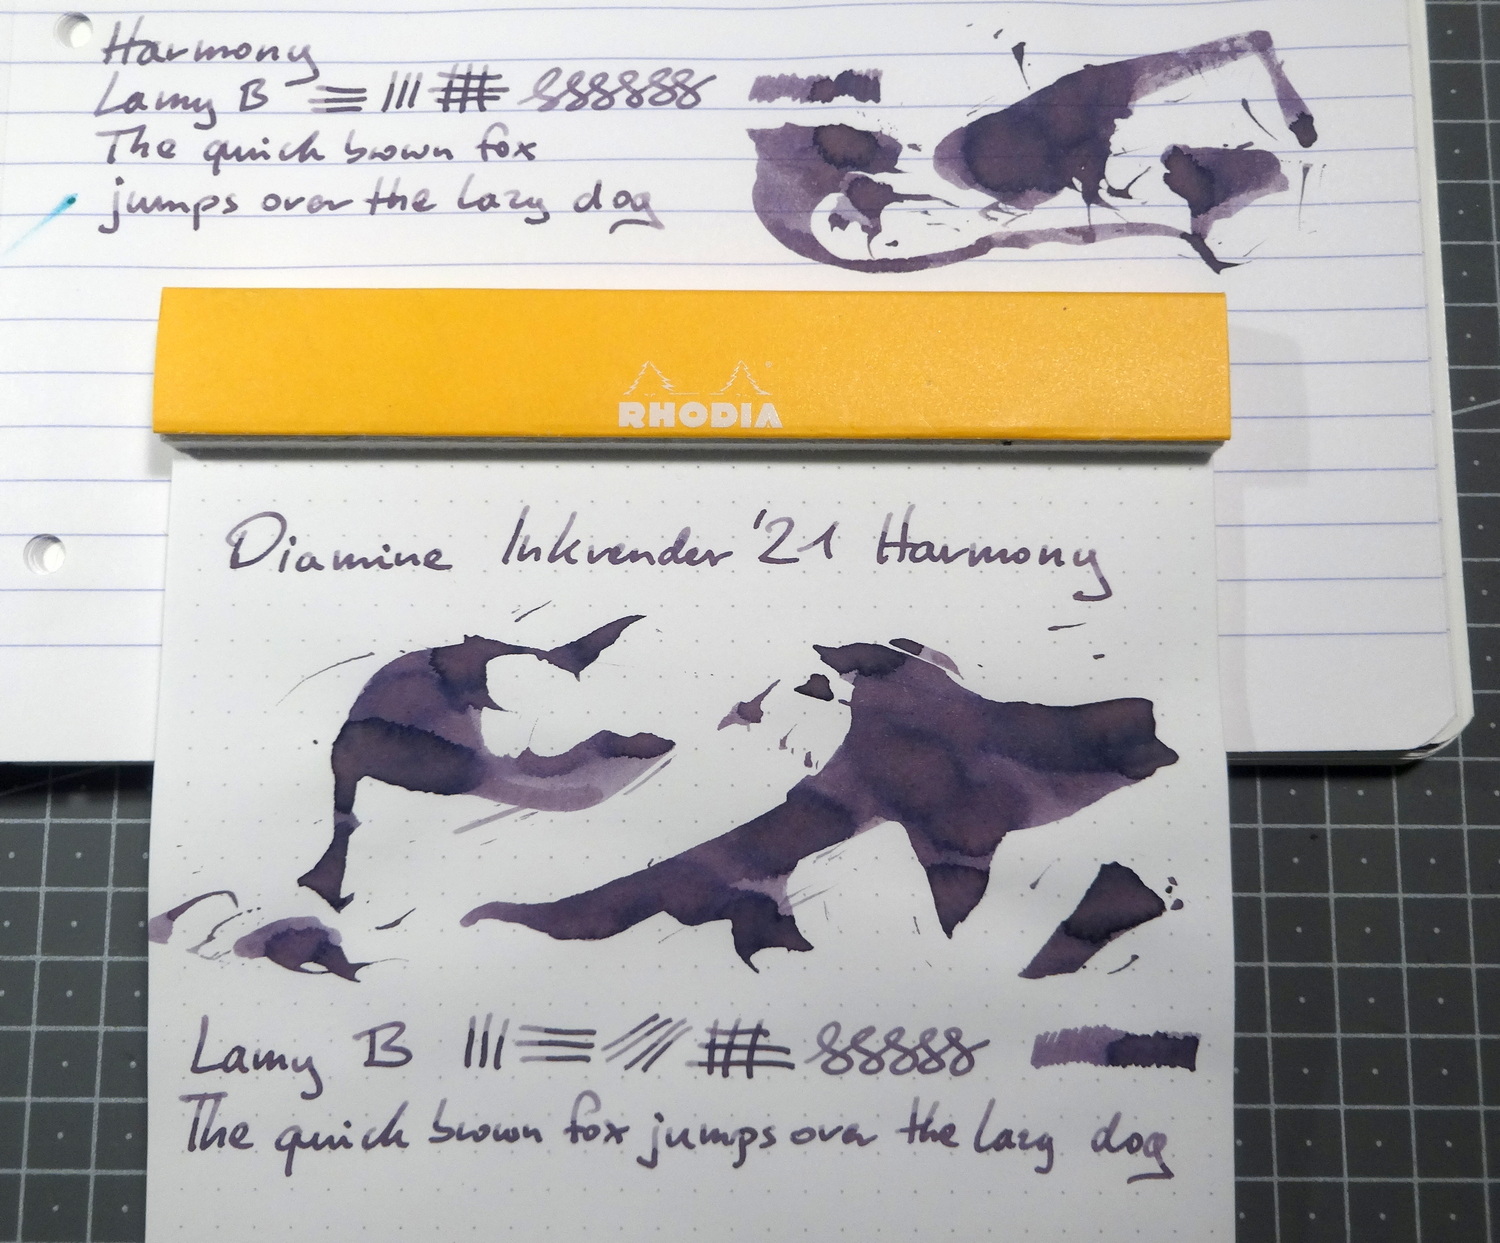 Harmony
Lamy B
The quick brown fox
jumps over the lazy dog
RHODIA
Diamine Inkvender '21 Harmony
Lamy B
The quick brown fox jumps over the lazy dog